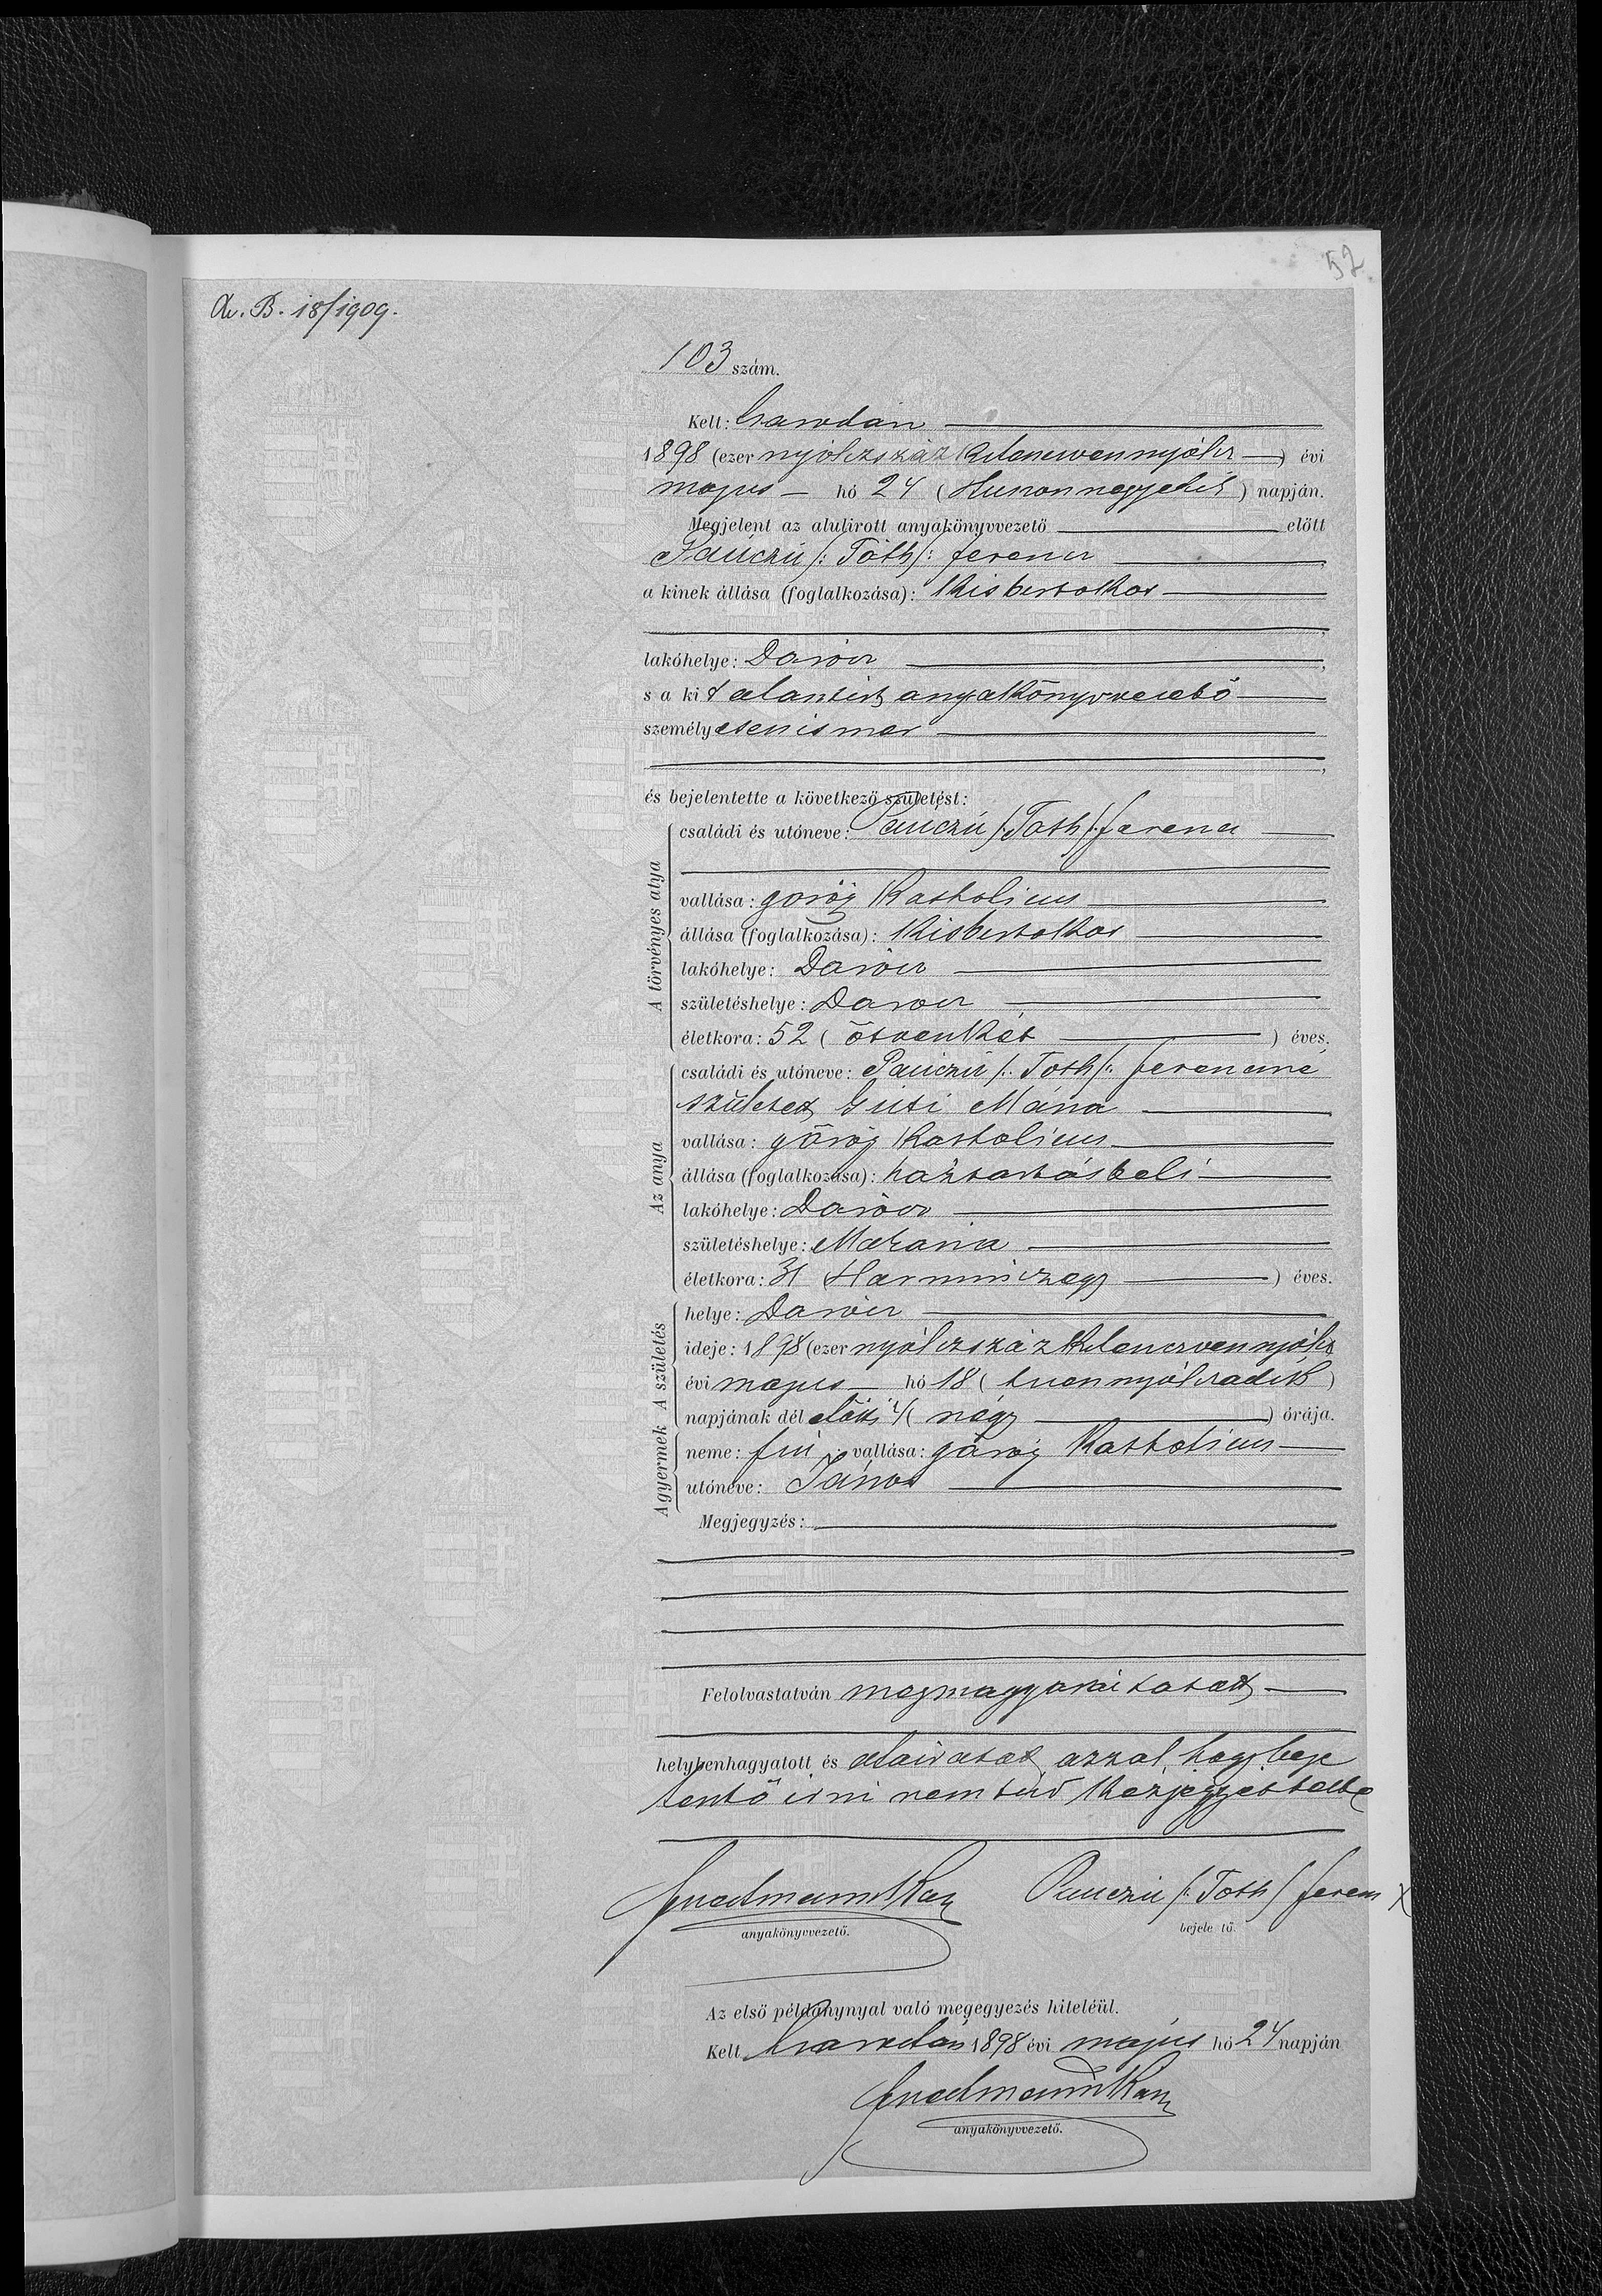 52
Av. B. 18/1909.
103 szám.
Kelt:
1898 (ezer nyólczszáz kilenczvennyólcz) évi
majus hó 24 (Huszonnegyedik) napján.
Megjelent az alulirott anyakönyvvezető előtt
Pauczú /: Tóth /: Ferencz
a kinek állása (foglalkozása): Kisbirtokos
lakóhelye: Darócz
s a kit alantirt anyakönyvvezető
személyesen ismer
és bejelentette a következő születést:
A törvényes atya
családi és utóneve: Pauczú /: Toth /: Ferencz
vallása: görög Katholicus
állása (foglalkozása): Kisbirtokos
lakóhelye: Darócz
születéshelye: Darocz
életkora: 52 (ötvenkét) éves.
Az anya
családi és utóneve: Pauczú /: Toth /: Ferenczné
született Guti Mária
vallása: görög Katholicus
állása (foglalkozása): háztartásbeli
lakóhelye: Darócz
születéshelye:
életkora: 31 (Harminczegy) éves.
A gyermek A születés
helye: Darócz
ideje: 1898 (ezer nyólczszáz kilenczvennyólcz
évi majus hó 18 (tizennyólczadik)
napjának dél előtti 4 (négy) órája.
neme: fiú vallása: görög Katholicus
utóneve: János
Megjegyzés:
Felolvastatván megmagyaráztatott
helybenhagyatott és aláiratott azzal, hogy beje
lentő irni nem tud kézjegyestette
anyakönyvvezető.
Pauczú /: Toth / Ferencz X
bejelentő.
Az első példánynyal való megegyezés hiteléül.
Kelt 1898 évi május hó 24 napján
anyakönyvvezető.